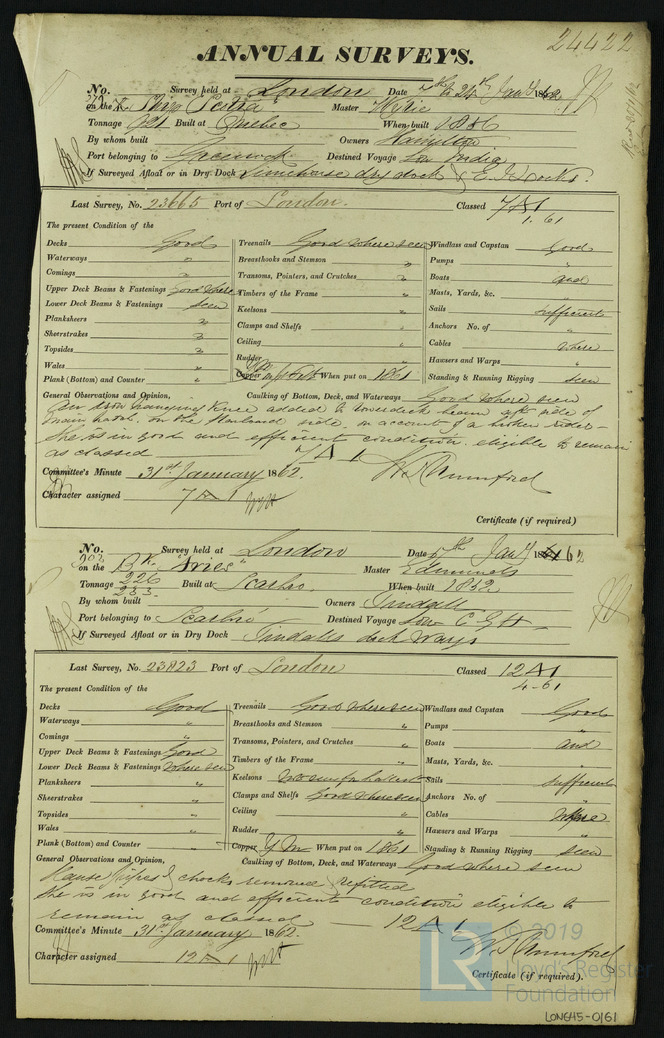 24422
ANNUAL SURVEYS.
No. Survey held at London Date 24th Jany 1862
on the Ship Master
Tonnage 921 Built at Quebec When built 1856
By whom built Owners Hamilton
Port belonging to Greenock Destined Voyage Lon India
If Surveyed Afloat or in Dry Dock Limehouse dry dock & E. I. Docks.
Last Survey, No. 23665 Port of London. Classed 7 A 1
1. 61
The present Condition of the
Decks Good Treenails Good where seen Windlass and Capstan Good
Waterways " Breasthooks and Stemson " Pumps "
Comings " Transoms, Pointers, and Crutches " Boats and
Upper Deck Beams & Fastenings Good where Timbers of the Frame " Masts, Yards, &c. "
Lower Deck Beams & Fastenings seen Keelsons " Sails sufficient
Planksheers " Clamps and Shelfs " Anchors No. of "
Sheerstrakes " Ceiling " Cables where
Topsides " Rudder " Hawsers and Warps "
Wales " Copper When put on 1861 Standing & Running Rigging seen
Plank (Bottom) and Counter "
General Observations and Opinion, Caulking of Bottom, Deck, and Waterways Good where seen
An Iron hanging knee added to lowerdeck beam aft side of
main hatch, on the starboard side, on account of a broken rider—
She is in good and efficient condition. eligible to remain
as classed 7 A 1
Committee's Minute 31st January 1862.
Character assigned 7 A 1
Certificate (if required)
No. Survey held at London Date 6th Jany 62
on the Bk. "Aries" Master Edmunds
Tonnage 226 Built at Scarbro. When built 1832
233
By whom built Owners Tindall
Port belonging to Scarbro' Destined Voyage Lon C G H
If Surveyed Afloat or in Dry Dock Tindalls dock Ways
Last Survey, No. 23823 Port of London Classed 12 A 1
4-61
The present Condition of the
Decks Good Treenails Good where seen Windlass and Capstan Good
Waterways " Breasthooks and Stemson " Pumps "
Comings " Transoms, Pointers, and Crutches " Boats and
Upper Deck Beams & Fastenings Good Timbers of the Frame " Masts, Yards, &c. "
Lower Deck Beams & Fastenings where seen Keelsons ballast Sails sufficient
Planksheers " Clamps and Shelfs Good where seen Anchors No. of "
Sheerstrakes " Ceiling " Cables where
Topsides " Rudder " Hawsers and Warps "
Wales " Copper Y M When put on 1861 Standing & Running Rigging seen
Plank (Bottom) and Counter "
General Observations and Opinion, Caulking of Bottom, Deck, and Waterways Good where seen
Hause pipes & chocks removed & refitted
She is in good and efficient condition eligible to
remain as classed — 12 A 1
Committee's Minute 31st January 1862.
Character assigned 12 A 1
Certificate (if required).
© 2019
LR
Lloyd's Register
Foundation
LON645-0161